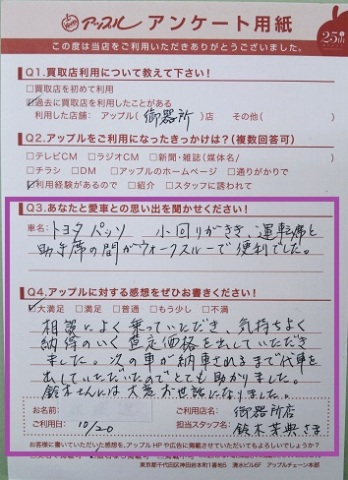 アップル アンケート用紙
25th
この度は当店をご利用いただきありがとうございました。
Q1.買取店利用について教えて下さい!
□買取店を初めて利用
☑過去に買取店を利用したことがある
利用した店舗:アップル( 御器所 )店 その他( )
Q2.アップルをご利用になったきっかけは?(複数回答可)
□テレビCM □ラジオCM □新聞・雑誌(媒体名/ )
□チラシ □DM □アップルのホームページ □通りがかりで
☑利用経験があるので □紹介 □スタッフに誘われて
Q3.あなたと愛車との思い出を聞かせください!
車名: トヨタ パッソ 小回りがきき、運転席と
助手席の間がウォークスルーで便利でした。
Q4.アップルに対する感想をぜひお書きください!
☑大満足 □満足 □普通 □もう少し □不満
相談によく乗っていただき、気持ちよく
納得のいく査定価格を出していただき
ました。次の車が納車されるまで代車を
出していただいたのでとても助かりました。
鈴木さんには大変お世話になりました。
お名前: ご利用店名: 御器所店
ご利用日: 10/20 担当スタッフ名: 鈴木 芽典さま
お客様に書いていただいた感想を、アップルHPや広告に掲載させていただいてもよろしいでしょうか?
東京都千代田区神田紺屋町1番地5 清水ビル6F アップルチェーン本部